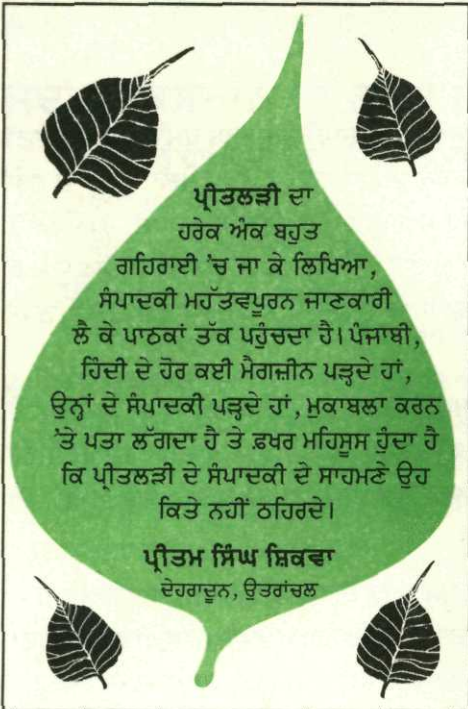 ਪ੍ਰੀਤਲੜੀ ਦਾ
ਹਰੇਕ ਅੰਕ ਬਹੁਤ
ਗਹਿਰਾਈ 'ਚ ਜਾ ਕੇ ਲਿਖਿਆ,
ਸੰਪਾਦਕੀ ਮਹੱਤਵਪੂਰਨ ਜਾਣਕਾਰੀ
ਲੈ ਕੇ ਪਾਠਕਾਂ ਤੱਕ ਪਹੁੰਚਦਾ ਹੈ। ਪੰਜਾਬੀ,
ਹਿੰਦੀ ਦੇ ਹੋਰ ਕਈ ਮੈਗਜ਼ੀਨ ਪੜ੍ਹਦੇ ਹਾਂ,
ਉਨ੍ਹਾਂ ਦੇ ਸੰਪਾਦਕੀ ਪੜ੍ਹਦੇ ਹਾਂ, ਮੁਕਾਬਲਾ ਕਰਨ
'ਤੇ ਪਤਾ ਲੱਗਦਾ ਹੈ ਤੇ ਫ਼ਖਰ ਮਹਿਸੂਸ ਹੁੰਦਾ ਹੈ
ਕਿ ਪ੍ਰੀਤਲੜੀ ਦੇ ਸੰਪਾਦਕੀ ਦੇ ਸਾਹਮਣੇ ਉਹ
ਕਿਤੇ ਨਹੀਂ ਠਹਿਰਦੇ।
ਪ੍ਰੀਤਮ ਸਿੰਘ ਸ਼ਿਕਵਾ
ਦੇਹਰਾਦੂਨ, ਉਤਰਾਂਚਲ